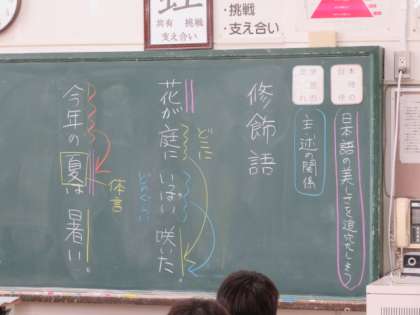 共有 挑戦
支え合い
・挑戦
・支え合い
日本語の美しさを追究しよう
主述の関係
修飾語
どこに
花が庭にいっぱい咲いた。
どのくらい
今年の夏は暑い。
体言